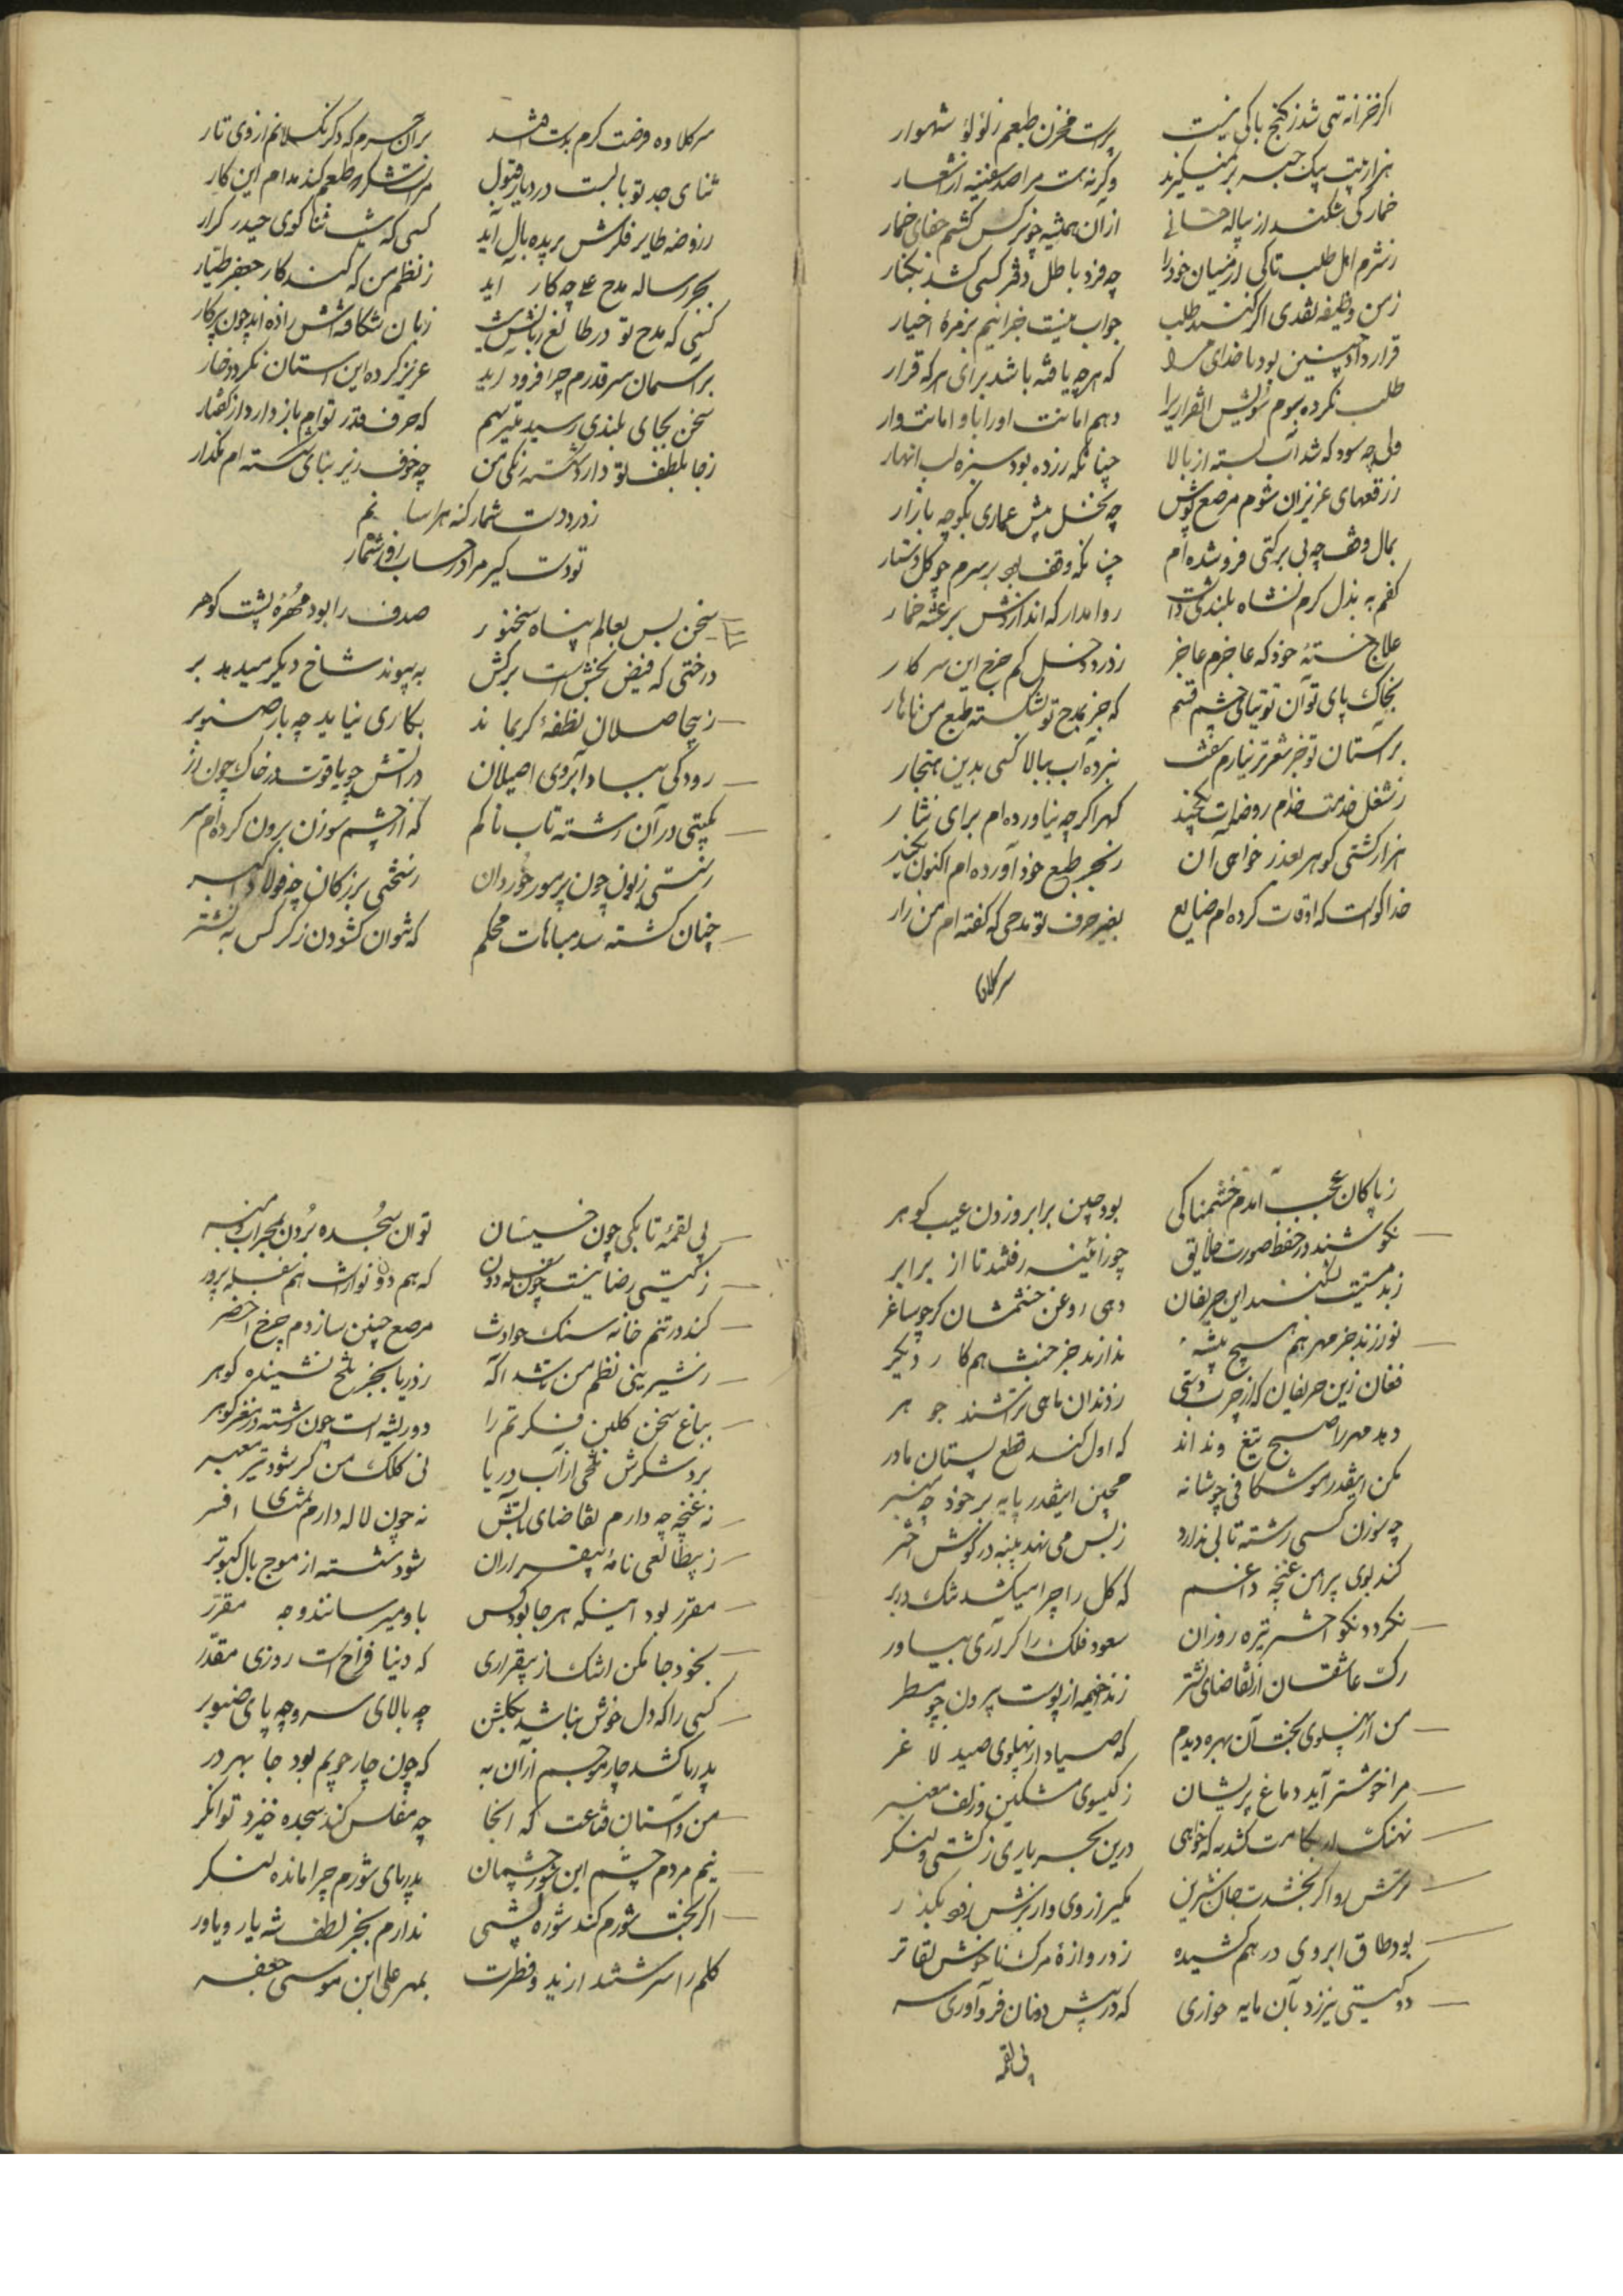 اگر خزانه تهی شد ز گنج باکی نیست پرست مخزن طبعم ز لؤلؤ شهوار
وگرنه هست مرا صد سفینه از اشعار
خمار کی شکند از پیاله از آن همیشه چو نرگس کشم جفای خمار
ز شرم اهل طلب تا کی از میان خود را چه فرد باطل دفتر کسی کشد بکنار
ز من وظیفه نقدی اگر کنند طلب جواب نیست جز اینم بزمرهٔ اخیار
قرارداد چنین بود با خدای مرا که هرچه یافته باشد برای هر که قرار
طلب نکرده دهم امانت او را باو امانت‌وار
ولی چه سود که شد آب بسته از بالا چنانکه رزده بود سبزه لب انهار
ز رقعهای عزیزان شوم مرصع پوش چه نخل پیش عماری بکوچه بازار
بمال وقف چه بی برکتی فرو شده‌ام چنانکه وقف بود بر سرم چو گل دستار
کفم به بذل کرم نشاه بلندی داشت روا مدار که اندازدش برعشه خمار
علاج خستهٔ خود که عاجزم عاجز ز درد دخل کم خرج این سرکار
بخاک پای تو آن توتیای چشم قسم که جز بمدح تو نشکسته طبع من ناهار
بر آستان تو جز شعر تر نیارم نبرده آب ببالا کسی بدین هنجار
ز شغل خدمت خدام روضه‌ات گهر اگرچه نیاورده‌ام برای نثار
هزار کشتی گوهر بعذر خواهی آن ز بحر طبع خود آورده‌ام اکنون
خدا گواست که اوقات کرده‌ام ضایع بغیر حرف تو مدحی که گفته‌ام من زار
سرکلاوه
سرکلاوه فرصت کرم بدست فتد بر آن سرم که دگر نگسلانم از وی تار
ثنای جد تو بالست در دیار قبول
ز روضه طایر فکرش پریده بال آید کسی که نیست ثنا گوی حیدر کرار
بجز رساله مدح علی چه کار آید ز نظم من که کند کار جعفر طیار
کسی که مدح تو در طالع زبانش نیست زبان شکافته‌اش زاده‌اند چون پرکار
بر آسمان سر قدرم چرا فرود آید عزیز کرده این آستان نگردد خوار
سخن بجای بلندی رسید میترسم که حرف قدر توام باز دارد از گفتار
ز جا بلطف تو دارد شکسته رنگی من چه خوف زیر بنای شکسته‌ام مگذار
ز درد دست شمار گنه هراسانم
تو دست گیر مرا در حساب روز شمار
سخن بس بعالم پناه سخنور صدف را بود مهرهٔ پشت گوهر
درختی که فیض بخش است برگش به پیوند شاخ دیگر میدهد بر
ز بیحاصلان نطفهٔ کریماند بکاری نیاید چه بار صنوبر
رود کی بباد آبروی اصیلان در آتش چو یاقوت در خاک چون زر
بگیتی در آن رشته تاب ناکم که از چشم سوزن برون کرده‌ام سر
ز سستی زبون چون پر مور خوردان ز سختی بزرگان چه فولاد
چنان گشته سد مباهات محکم که نتوان گشودن ز کرکس به نشتر
ز پاکان عجب آیدم خشمناکی بود چین بر ابرو زدن عیب گوهر
نکوشند در حفظ صورت خلایق چو ز آئینه رفتند تا از برابر
ز بدمستیت نشکنند این حریفان دهی روغن چشمشان گر چو ساغر
نورزند جز مهر هم هیچ پیشه ندارند جز حب هم کار دیگر
فغان زین حریفان که از چرب دستی ز دندان ماهی تراشند جوهر
دهد مهر را صبح تیغ و نداند که اول کند قطع پستان مادر
مکن اینقدر موشکافی چو شانه مچین اینقدر پایه بر خود چه منبر
چه سوزن کسی رشته تابی ندارد ز بس می نهد پنبه در گوش اختر
کند بوی پیراهن غنچه داغم که گل را چرا میکشد تنگ در بر
نگردد نکو اختر تیره روزان سعود فلک را گر آری بیاور
رگ عاشقان از تقاضای نشتر زند خیمه از پوست بیرون چو مسطر
من از پهلوی بخت آن بهره دیدم که صیاد از پهلوی صید لاغر
مرا خوشتر آید دماغ پریشان ز گیسوی مشکین و زلف معنبر
نهنگ ار بکامت کشد به که خواهی درین بحر یاری ز کشتی و لنگر
ترش رو اگر بخشدت جان شیرین مگیر از وی و از برش زود بگذر
بود طاق ابروی در هم کشیده ز دروازهٔ مرگ ناخوش لقاتر
دو گیتی نیرزد بآن مایه خواری که در پیش دونان فرو آوری سر
پی لقمه
پی لقمه تا بکی چون خسیسان توان سجده بردن بمحراب و منبر
ز گیتی رضا نیست چون سفله دون که هم دون نواز است هم سفله پرور
کند در تنم خانه سنگ حوادث مرصع چنین سازدم چرخ اخضر
ز شیرینی نظم من باشد آگه ز دریا بجز تلخ نشنیده گوهر
بباغ سخن گلبن فکرتم را دو ریشه است چون رشته در مغز گوهر
برد شکرش تلخی از آب دریا نی کلک من گر شود تیر معبر
نه غنچه چه دارم تقاضای بالش نه چون لاله دارم تمنای افسر
ز بیطالعی نامهٔ بیقراران شود شسته از موج بال کبوتر
مقرر بود اینکه هر جا بود کس باو میرسانند وجه مقرر
بخود جا مکن اشک از بیقراری که دنیا فراخ است و روزی مقدر
کسی را که دل خوش نباشد بگلشن چه بالای سرو و چه پای صنوبر
بدریا کشد چار موجم از آن به که چون چارچوبم بود جا بهر در
من و آستان قناعت که آنجا چه مفلس کند سجده خیزد توانگر
نیم مردم چشم این شور چشمان بدریای شورم چرا مانده لنگر
اگر بخت شورم کند شوره پشتی ندارم بجز لطف شه یار و یاور
گلم را سرشتند از بدو فطرت بمهر علی ابن موسی جعفر